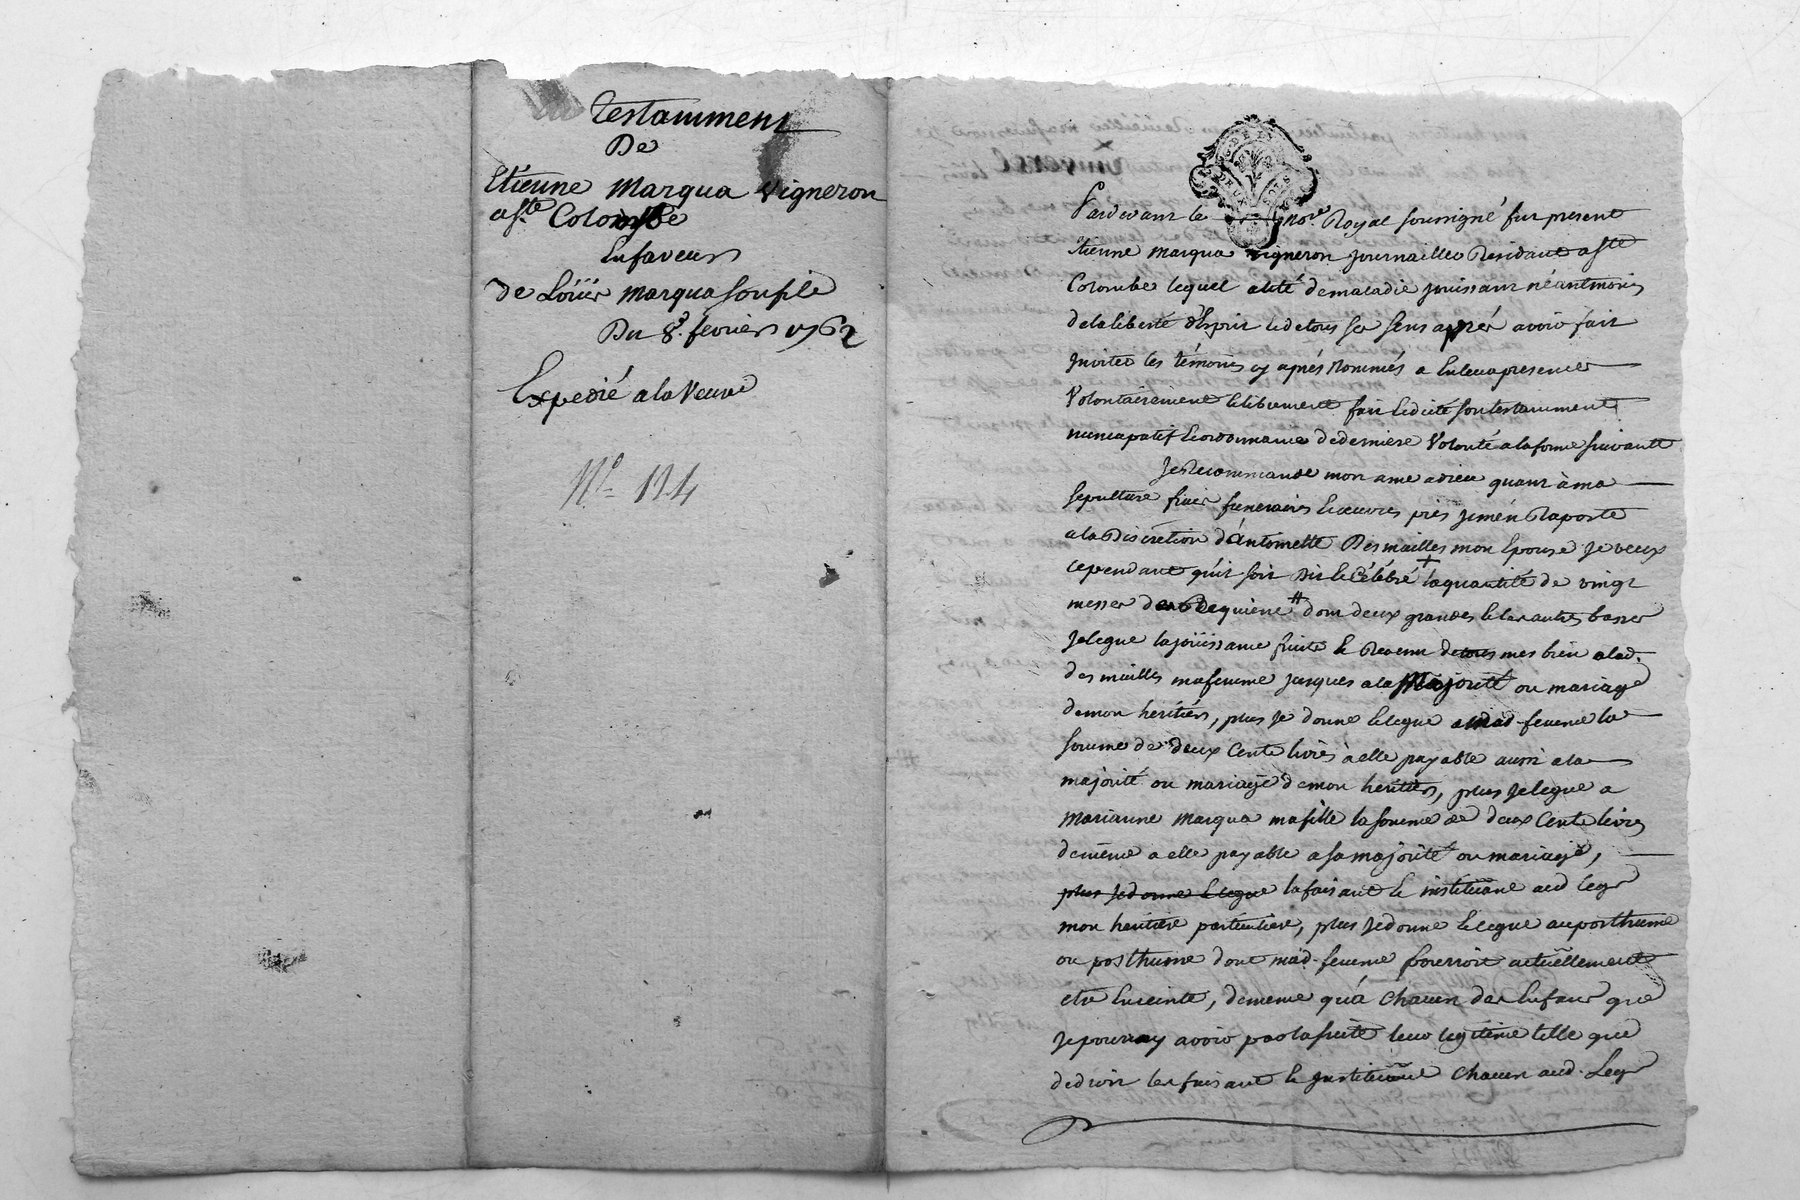 Testamment
De
Etienne Marqua Vigneron
a Ste Colombe
En faveur
de Loüis Marqua son fils
Du 8e. fevrier 1762
Expedié a la Veuve
No 114
Pardevant le nore. Royal soussigné fut present
Etienne Marqua vigneron journaillier Residant a Ste
Colombe lequel alité de maladie jouissant néantmoins
de la liberté d'Esprit et de tous ses sens aprés avoir fait
Inviter les témoins cy aprés Nommés a en leur presence
Volontairement et librement fait et dicté son testamment
nuncupatif et ordonnance de derniere Volonté a la forme suivante
Je Recommande mon ame a dieu quant à ma
sepulture frais funeraires et oeuvres pies je m'en Raporte
a la Discrétion d'Antoinette Desmailles mon Epouse je veux
cependant qu'il soit Dit et Célébré la quantité de vingt
messes de Requiem dont deux grandes et les autres basses
Je legue la joüissance fruits et Revenu de tous mes bien a lad.
desmailles ma femme jusques a la Majorité ou mariage
de mon heritier, plus je donne et legue a mad. femme la
somme de deux Cents livres à elle payable aussi a la
majorité ou mariage de mon heritier, plus je legue a
Marianne Marqua ma fille la somme de deux Cents livres
de même a elle payable a sa majorité ou mariage,
plus je donne et legue la faisant et instituant aud. legs
mon heritiere particuliere, plus je donne et legue au posthume
ou posthume dont mad. femme pourroit actuëllement
etre Enceinte, de meme qu'à chacun des Enfans que
je pourray avoir par la suite leur legitime telle que
de droit les faisant et Instituant chacun aud. Legs